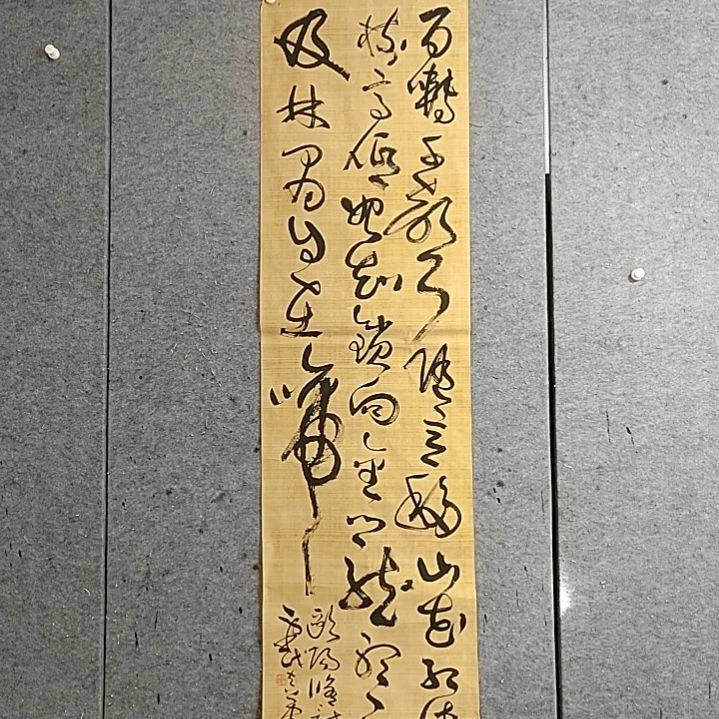 百囀千聲隨意移山花紅
樹高低始知鎖向金籠聽
及林間自在啼
歐陽修詩